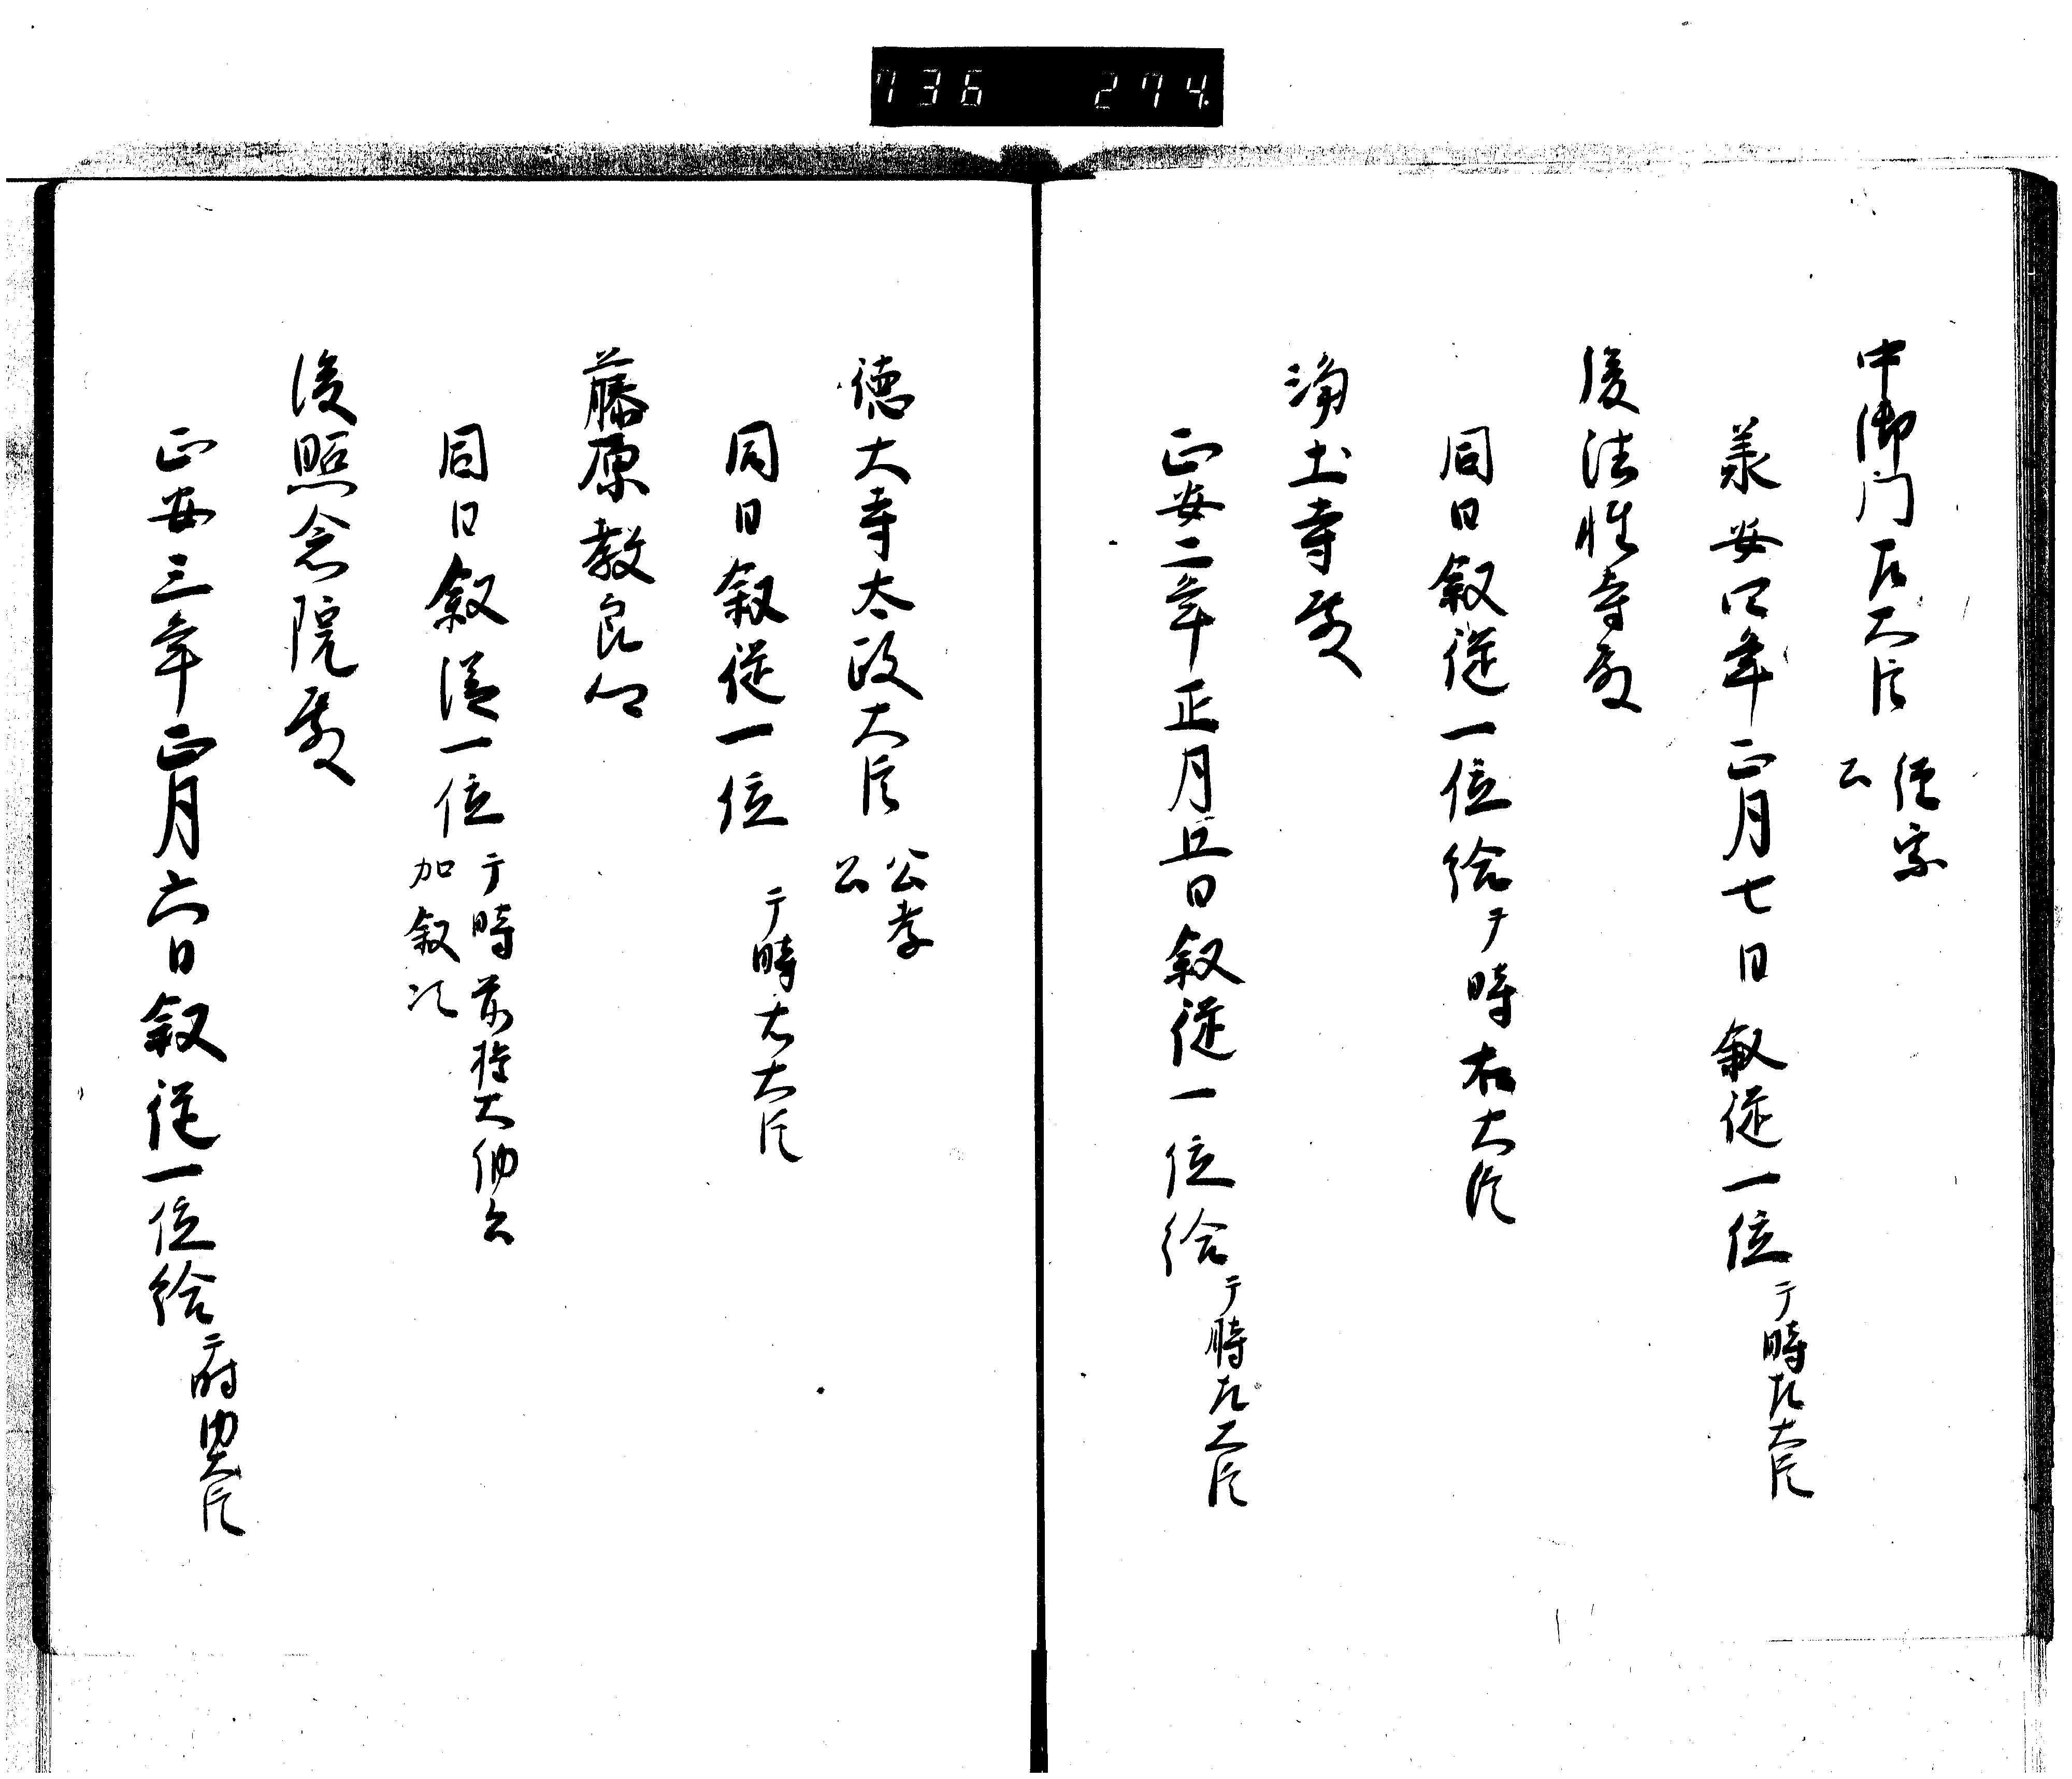 736 274
中御门左大臣 経宗
公
承安四年正月七日叙従一位 于時左大臣
後法性寺殿
同日叙従一位給 于時右大臣
浄土寺殿
正安二年正月五日叙従一位給 于時左大臣
徳大寺太政大臣 公孝
公
同日叙従一位 于時右大臣
藤原教良卿
同日叙従一位 于時前権大納言
加叙次
後照念院殿
正安三年正月六日叙従一位給 于时内大臣